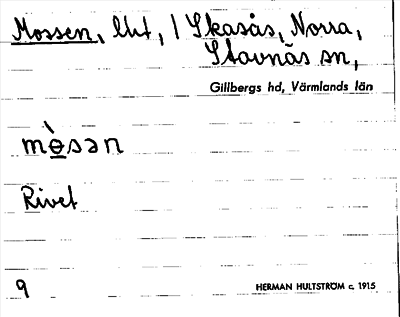 Mossen, lht, / Skasås, Norra,
Stavnäs sn,
Gillbergs hd, Värmlands län
mòsən
Rivet
9
HERMAN HULTSTRÖM c. 1915